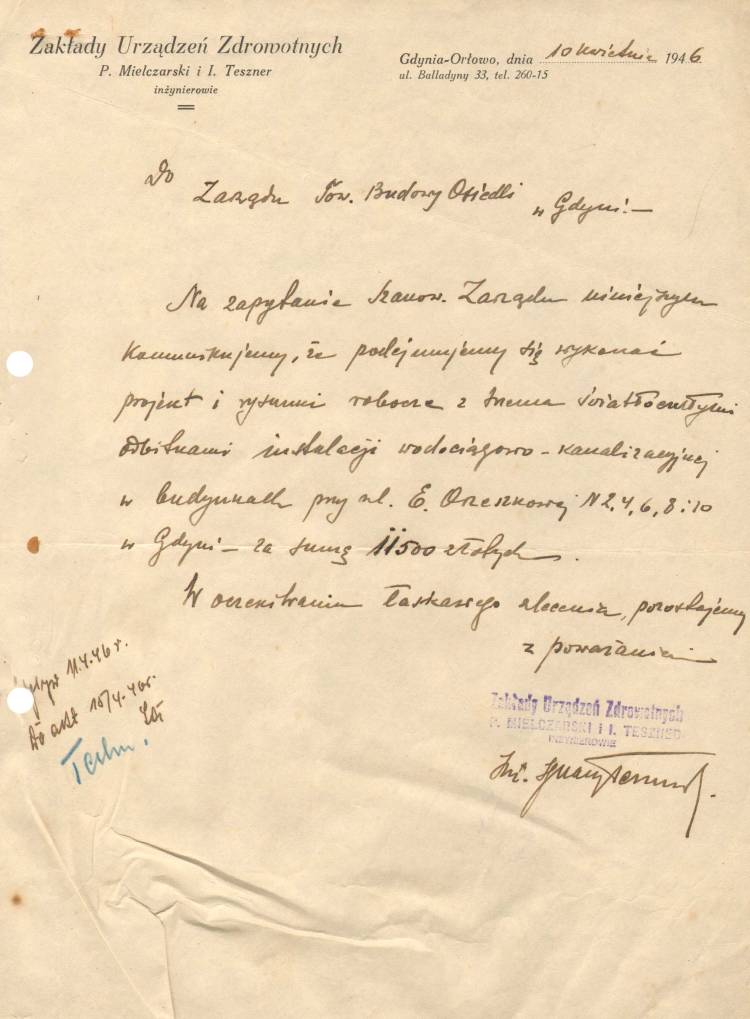 Zakłady Urządzeń Zdrowotnych
P. Mielczarski i I. Teszner
inżynierowie
Gdynia-Orłowo, dnia 10 kwietnia 1946
ul. Balladyny 33, tel. 260-15
Do
Zarządu Tow. Budowy Osiedli
w Gdyni.-
Na zapytanie Szanow. Zarządu niniejszym
komunikujemy, że podejmujemy się wykonać
projekt i rysunki robocze z trema światłoczułymi
odbitkami instalacji wodociągowo-kanalizacyjnej
w budynkach przy ul. E. Orzeszkowej N 2, 4, 6, 8 i 10
w Gdyni - za sumę 11500 złotych.
W oczekiwaniu łaskawego zlecenia, pozostajemy
z poważaniem
Zakłady Urządzeń Zdrowotnych
P. MIELCZARSKI i I. TESZNER
INŻYNIEROWIE
Inż. Ignacy Teszner.
11.4.46 r.
Do akt 15/4.46r.
Techn.